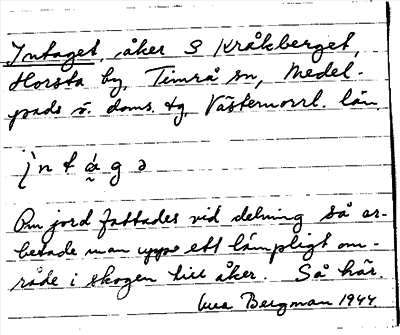 Intaget, åker S Kråkberget,
Horsta by, Timrå sn, Medel-
pads ö. doms. tg, Västernorrl. län.
i`n t á̰ g ə
Om jord fattades vid delning så ar-
betade man upp ett lämpligt om-
råde i skogen till åker. Så här.
Bergman 1944